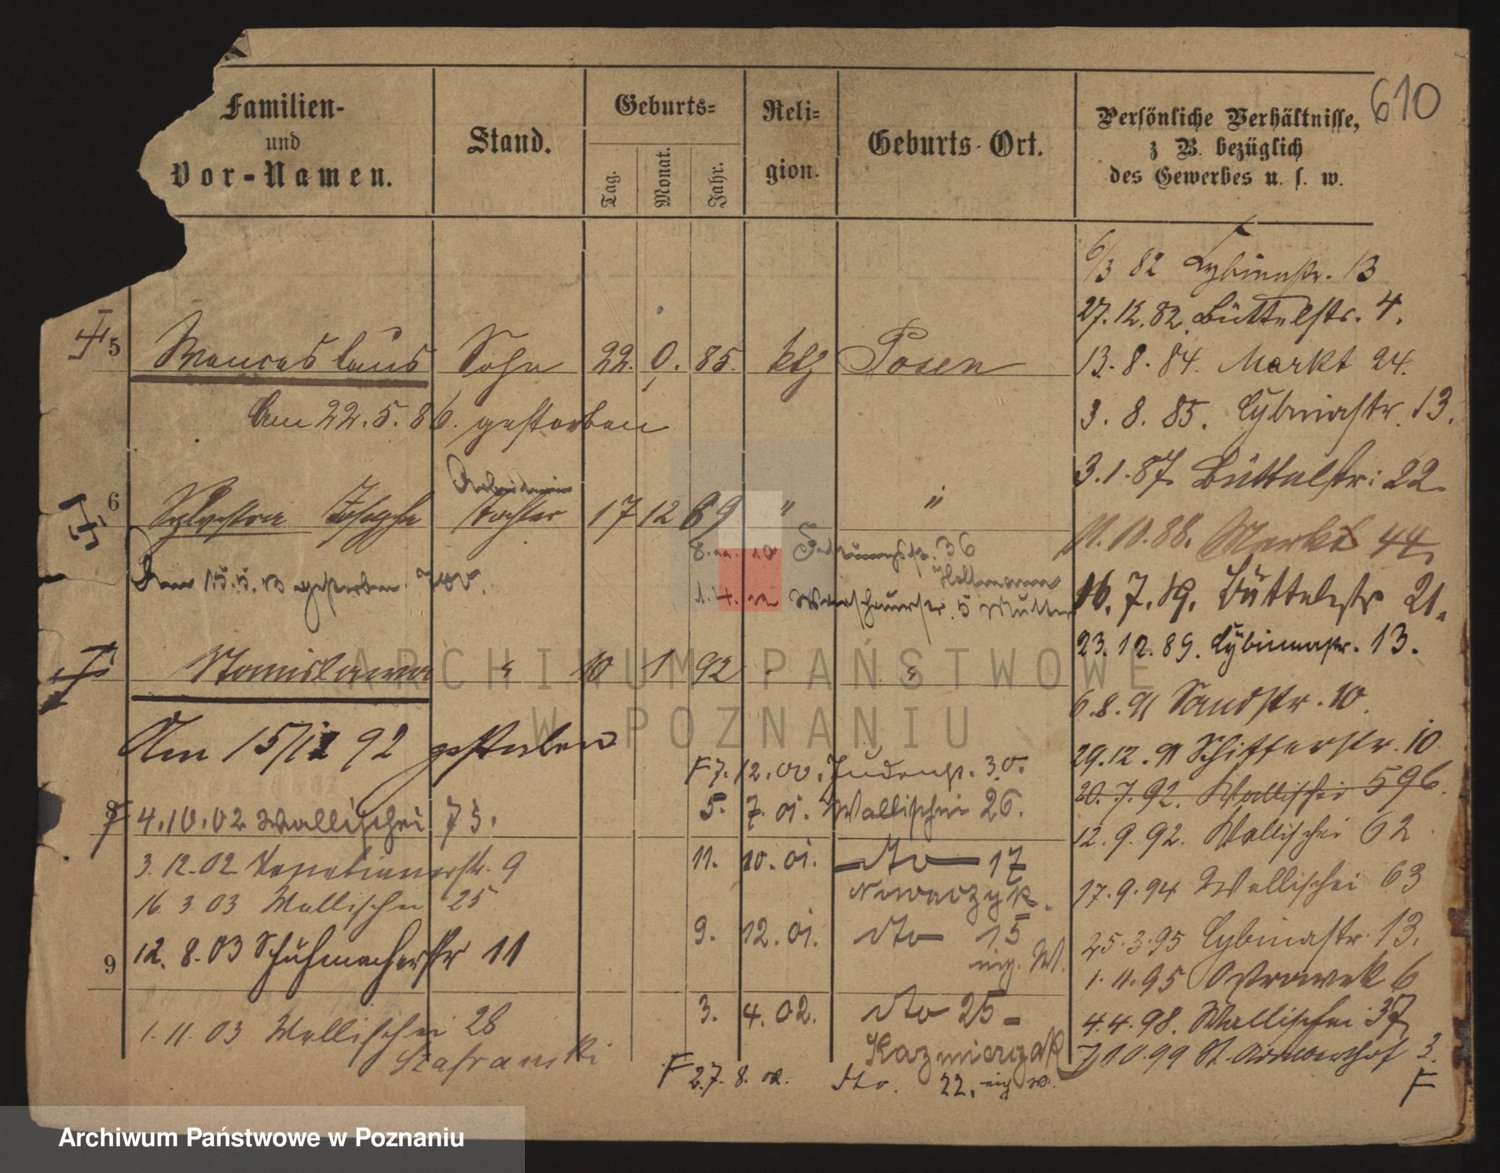 610
Familien-
und
Vor-Namen.
Stand.
Geburts-
Tag.
Monat.
Jahr.
Reli-
gion.
Geburts-Ort.
Persönliche Verhältnisse,
z B. bezüglich
des Gewerbes u. s. w.
5 Wenceslaus Sohn 22. 9. 85. ktz Posen
Am 22.5.86. gestorben
6 Sylvestra Josepha Tochter 17 12 69 " "
Arbeiterin
Am 15.5.13 gestorben
8. 10 36
1.4. Warschauerstr. 5 Mutter
Stanislawa " 10 1 92 "
Am 15/ 92 gestorben
F 7. 12. 00. Judenstr. 30.
5. 7. 01. Wallischei 26.
11. 10. 01. dto 17
Nowaczyk.
9. 12. 01. dto 15
eig. W.
3. 4. 02. dto 25
Kazmierczak
F 27. 8. 02. dto. 22. eig W.
8
4.10.02 Wallischei 73.
3.12.02 Venetianerstr. 9
16 3.03 Wallischei 25
12. 8.03 Schuhmacherstr 11
9
1.11.03 Wallischei 28
Szafranski
6/3 82 Cybinastr. 13
27.12.82. Büttelstr. 4.
13. 8. 84. Markt 24.
3. 8. 85. Cybinastr. 13.
3.1.87. Büttelstr: 22
11.10.88. Markt 44.
16.7.89. Büttelstr 21.
23.12.89. Cybinastr. 13.
6.8.91 Sandstr. 10.
29.12.91 Schifferstr. 10
20.7.92. Wallischei 596.
12.9.92. Wallischei 62
17.9.94 Wallischei 63
25.3.95 Cybinastr. 13.
1.11.95 Ostrowek 6
4.4.98. Wallischei 37
7/10.99 St. Adalberthof 3.
F
ARCHIWUM PAŃSTWOWE
W POZNANIU
Archiwum Państwowe w Poznaniu